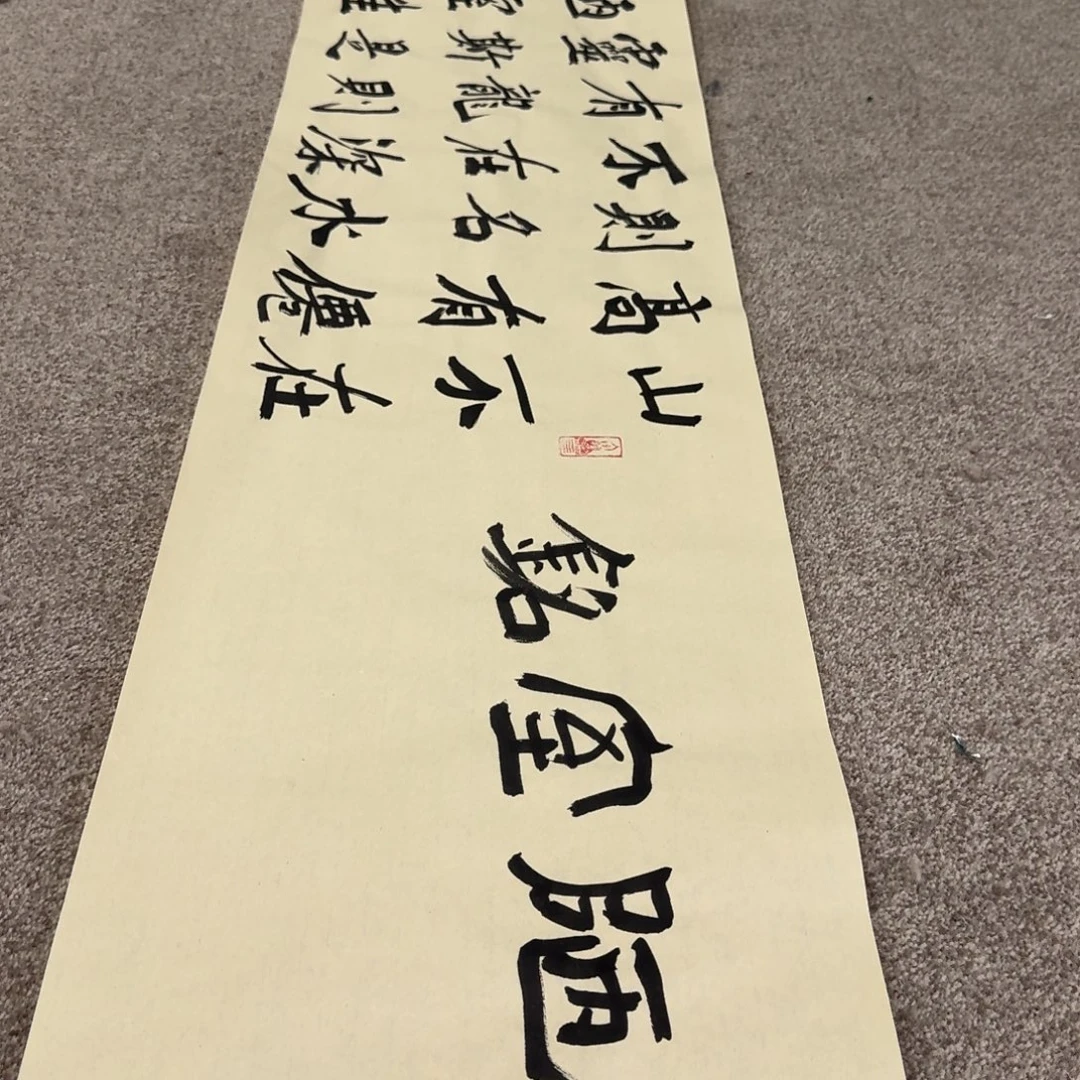 陋室銘
山不在
高有僊
則名水
不在深
有龍則
靈斯是
陋室惟